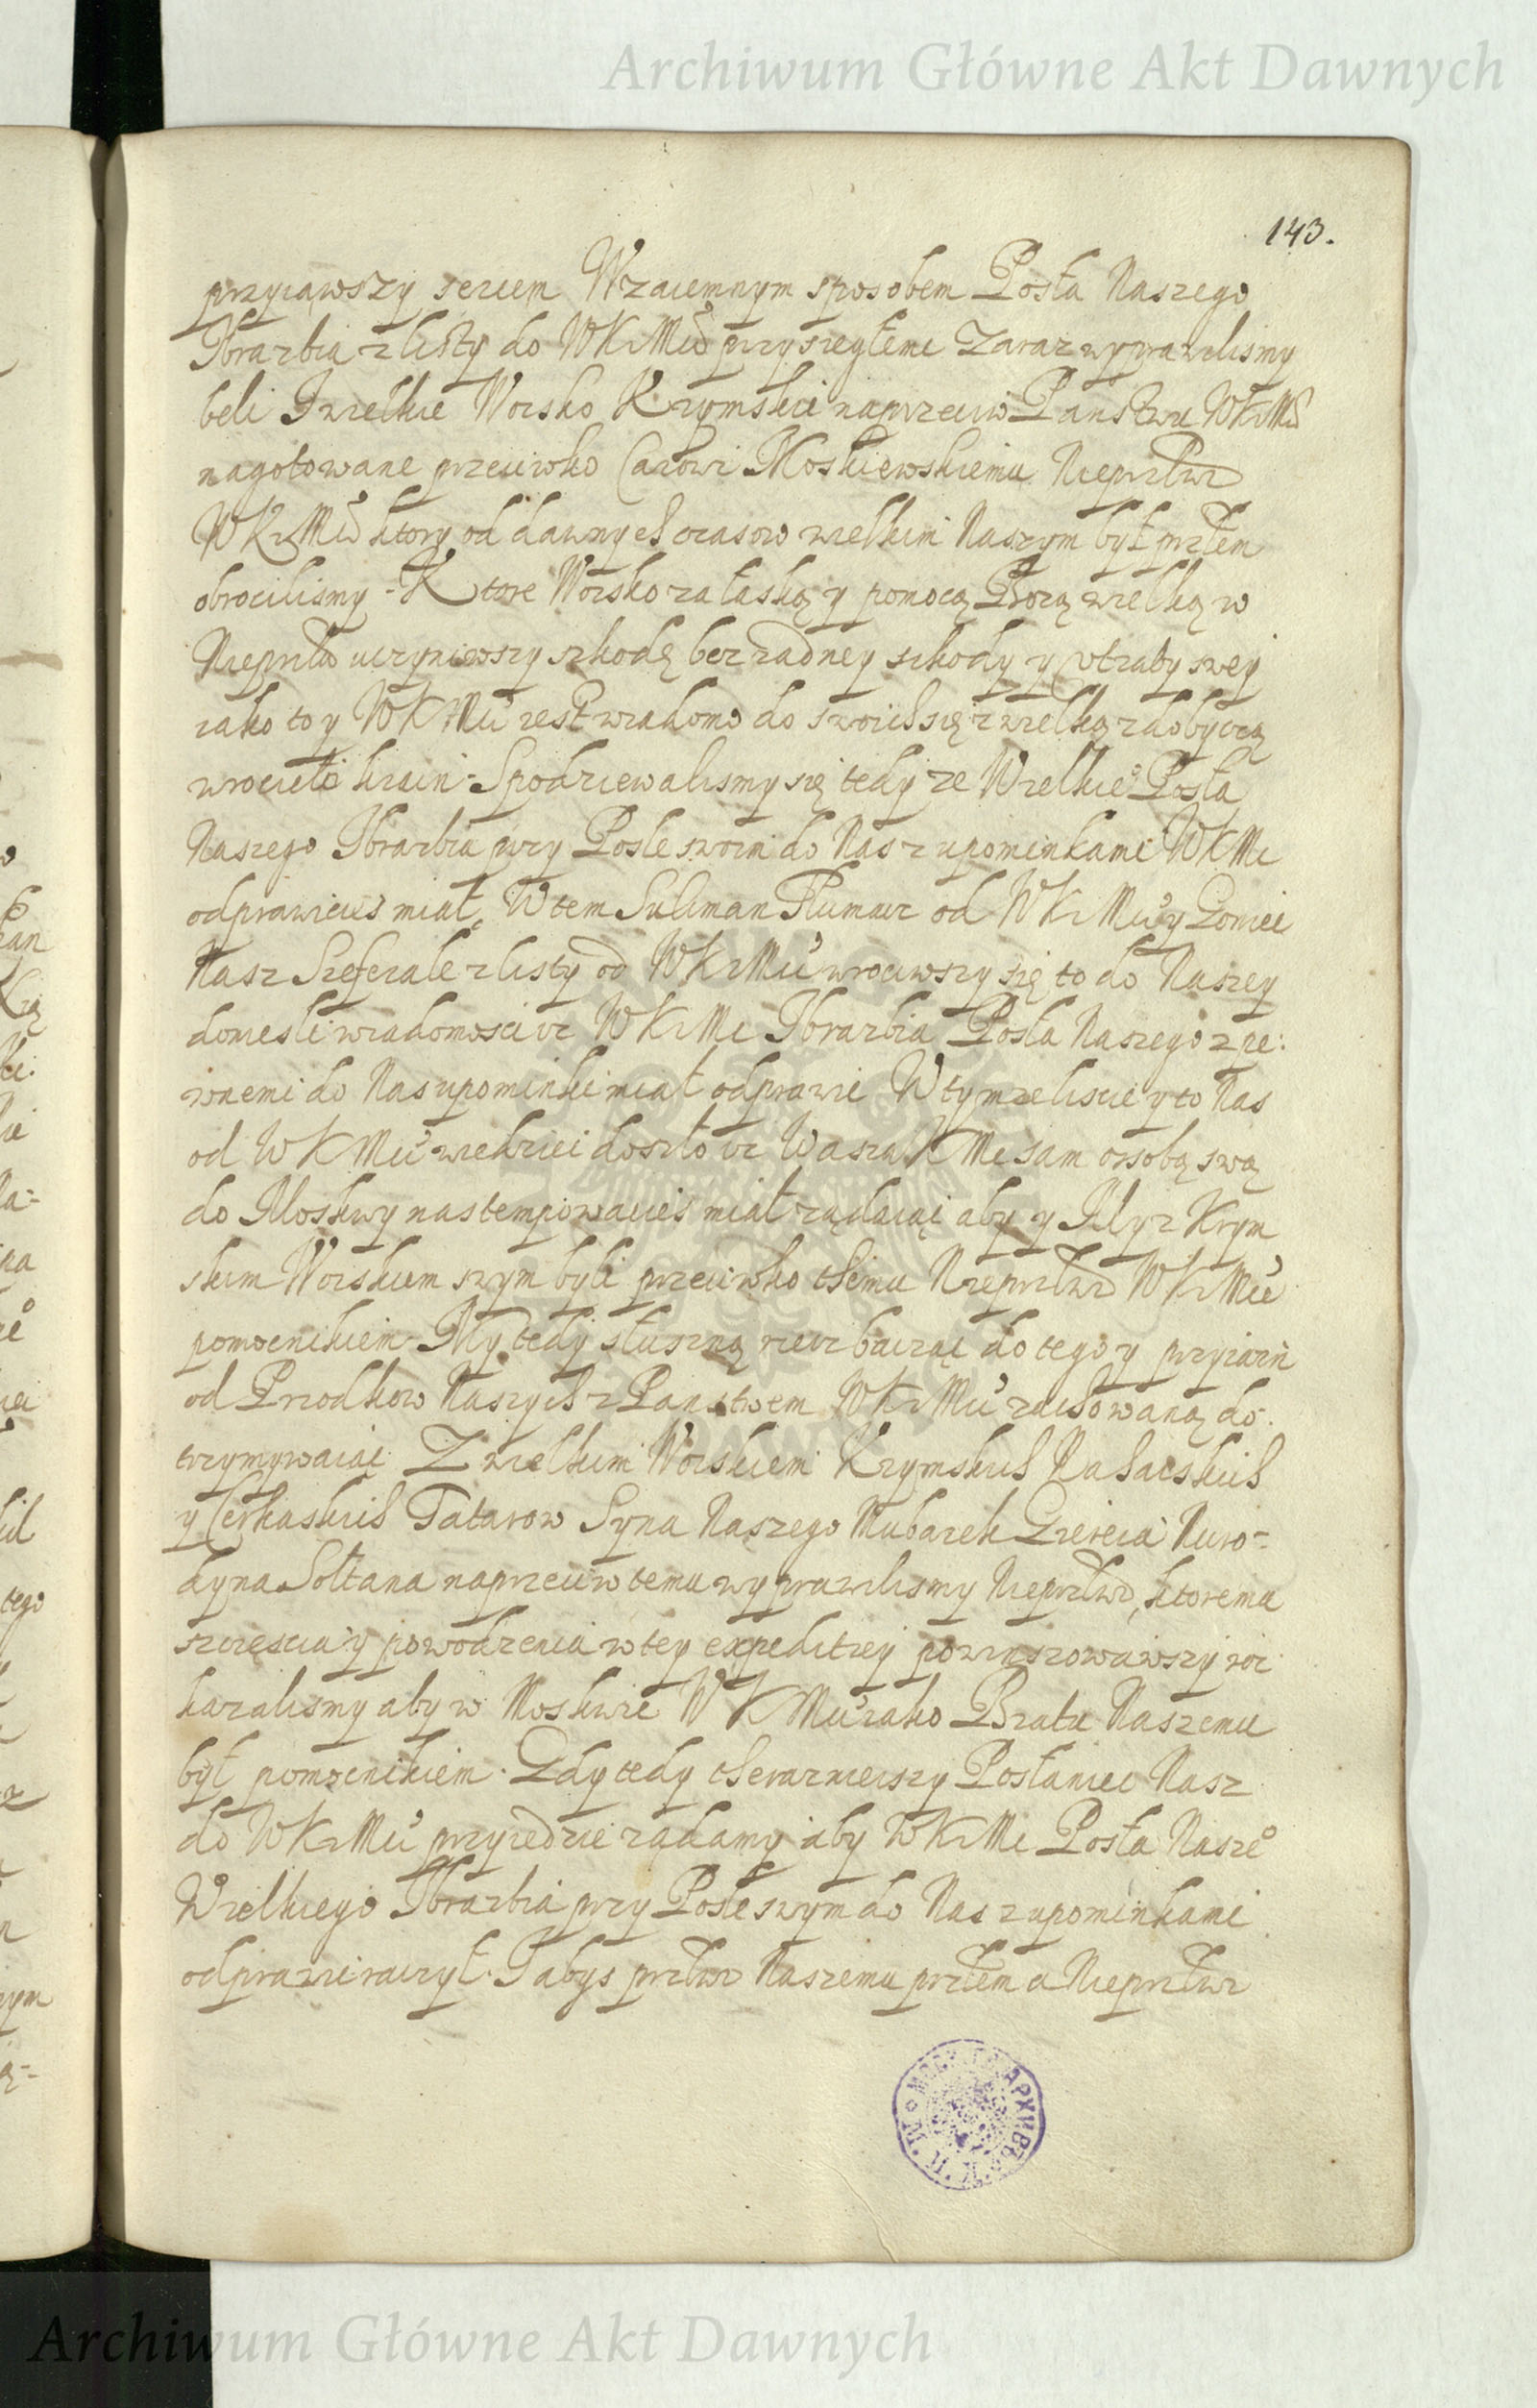 Archiwum Główne Akt Dawnych
143.
przyiąwszy sercem Wzaiemnym sposobem Posła Naszego
Ibrazbia z listy do WKrMci przysięgłemi Zaraz wyprawilismy
beli I wielkie Woisko Krzymskie naprzeciw Państwu WKrMci
nagotowane przeciwko Carowi Moskiewskiemu Nieprzłwi
WKrMci ktory od dawnych czasow wielkim Naszym był przłem
obrocilismy - Ktore Woisko za łaską y pomocą Bozą wielką w
Nieprzłu uczyniwszy szkodę bez zadney szkody y utraty swey
iako to y WKMci iest wiadomo do swoich się z wielką zdobyczą
wrociełi krain - Spodziewalismy się tedy ze Wielkieº Posła
Naszego Ibrazbia przy Posle swoim do Nas z upominkami WKMc
odprawicies miał, W tem Suliman Tłumacz od WKrMci y Goniec
Nasz Szeferale z listy od WKrMci wrociwszy się to do Naszey
doniesli wiadomosci iz WKrMc Ibrazbia Posła Naszego z pe:
wnemi do Nas upominki miał odprawic W tymze liscie y to Nas
od WKMci wiedziec doszło iz Wasza KMc sam ossobą swą
do Moskwy nastempowacies miał ządaiąc aby y My z Krym
skim Woiskiem swym byli przeciwko themu Nieprzłwi WKrMci
pomocnikiem - My tedy słuszną rzecz bacząc do tego y przyiazn
od Przodkow Naszych z Panstwem WKrMci zachowaną do:
trzymywaiąc Z wielkim Woiskiem Krzymskich Nahaiskich
y Cerkaskich Tatarow Syna Naszego Mubarek Giereia Nuro=
dyna Sołtana naprzeciw temu wyprawilismy Nieprzłwi, ktoremu
szczescia y powodzenia w tey expeditiey powinszowawszy roz
kazalismy aby w Moskwie WKMci iako Bratu Naszemu
był pomocnikiem. Gdy tedy therazneiszy Posłaniec Nasz
do WKrMci przyiedzie ządamy aby WKrMc Posła Naszeº
Wielkiego Ibrazbia przy Posle swym do Nas z upominkami
odprawic raczył. I abys przłwi Naszemu przłem a Nieprzłwi
Archiwum Główne Akt Dawnych